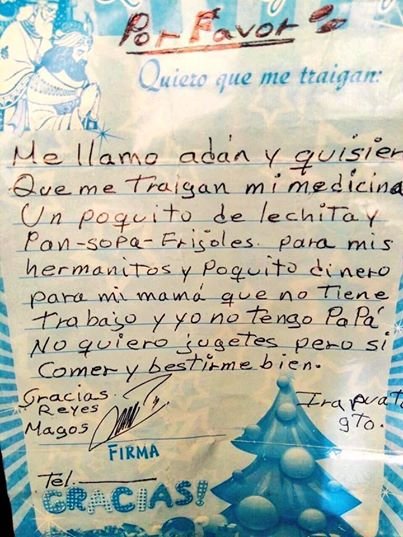 Por Favor
Quiero que me traigan:
Me llamo adán y quisier
Que me Traigan mi medicina
Un poquito de lechita y
Pan-sopa-Frijoles. para mis
hermanitos y Poquito dinero
para mi mamá que no Tiene
Trabajo y yo no tengo PaPá
No quiero jugetes pero si
Comer y bestirme bien.
Gracias.
Reyes
Magos
Irapuato
gto.
FIRMA
Tel.
GRACIAS!